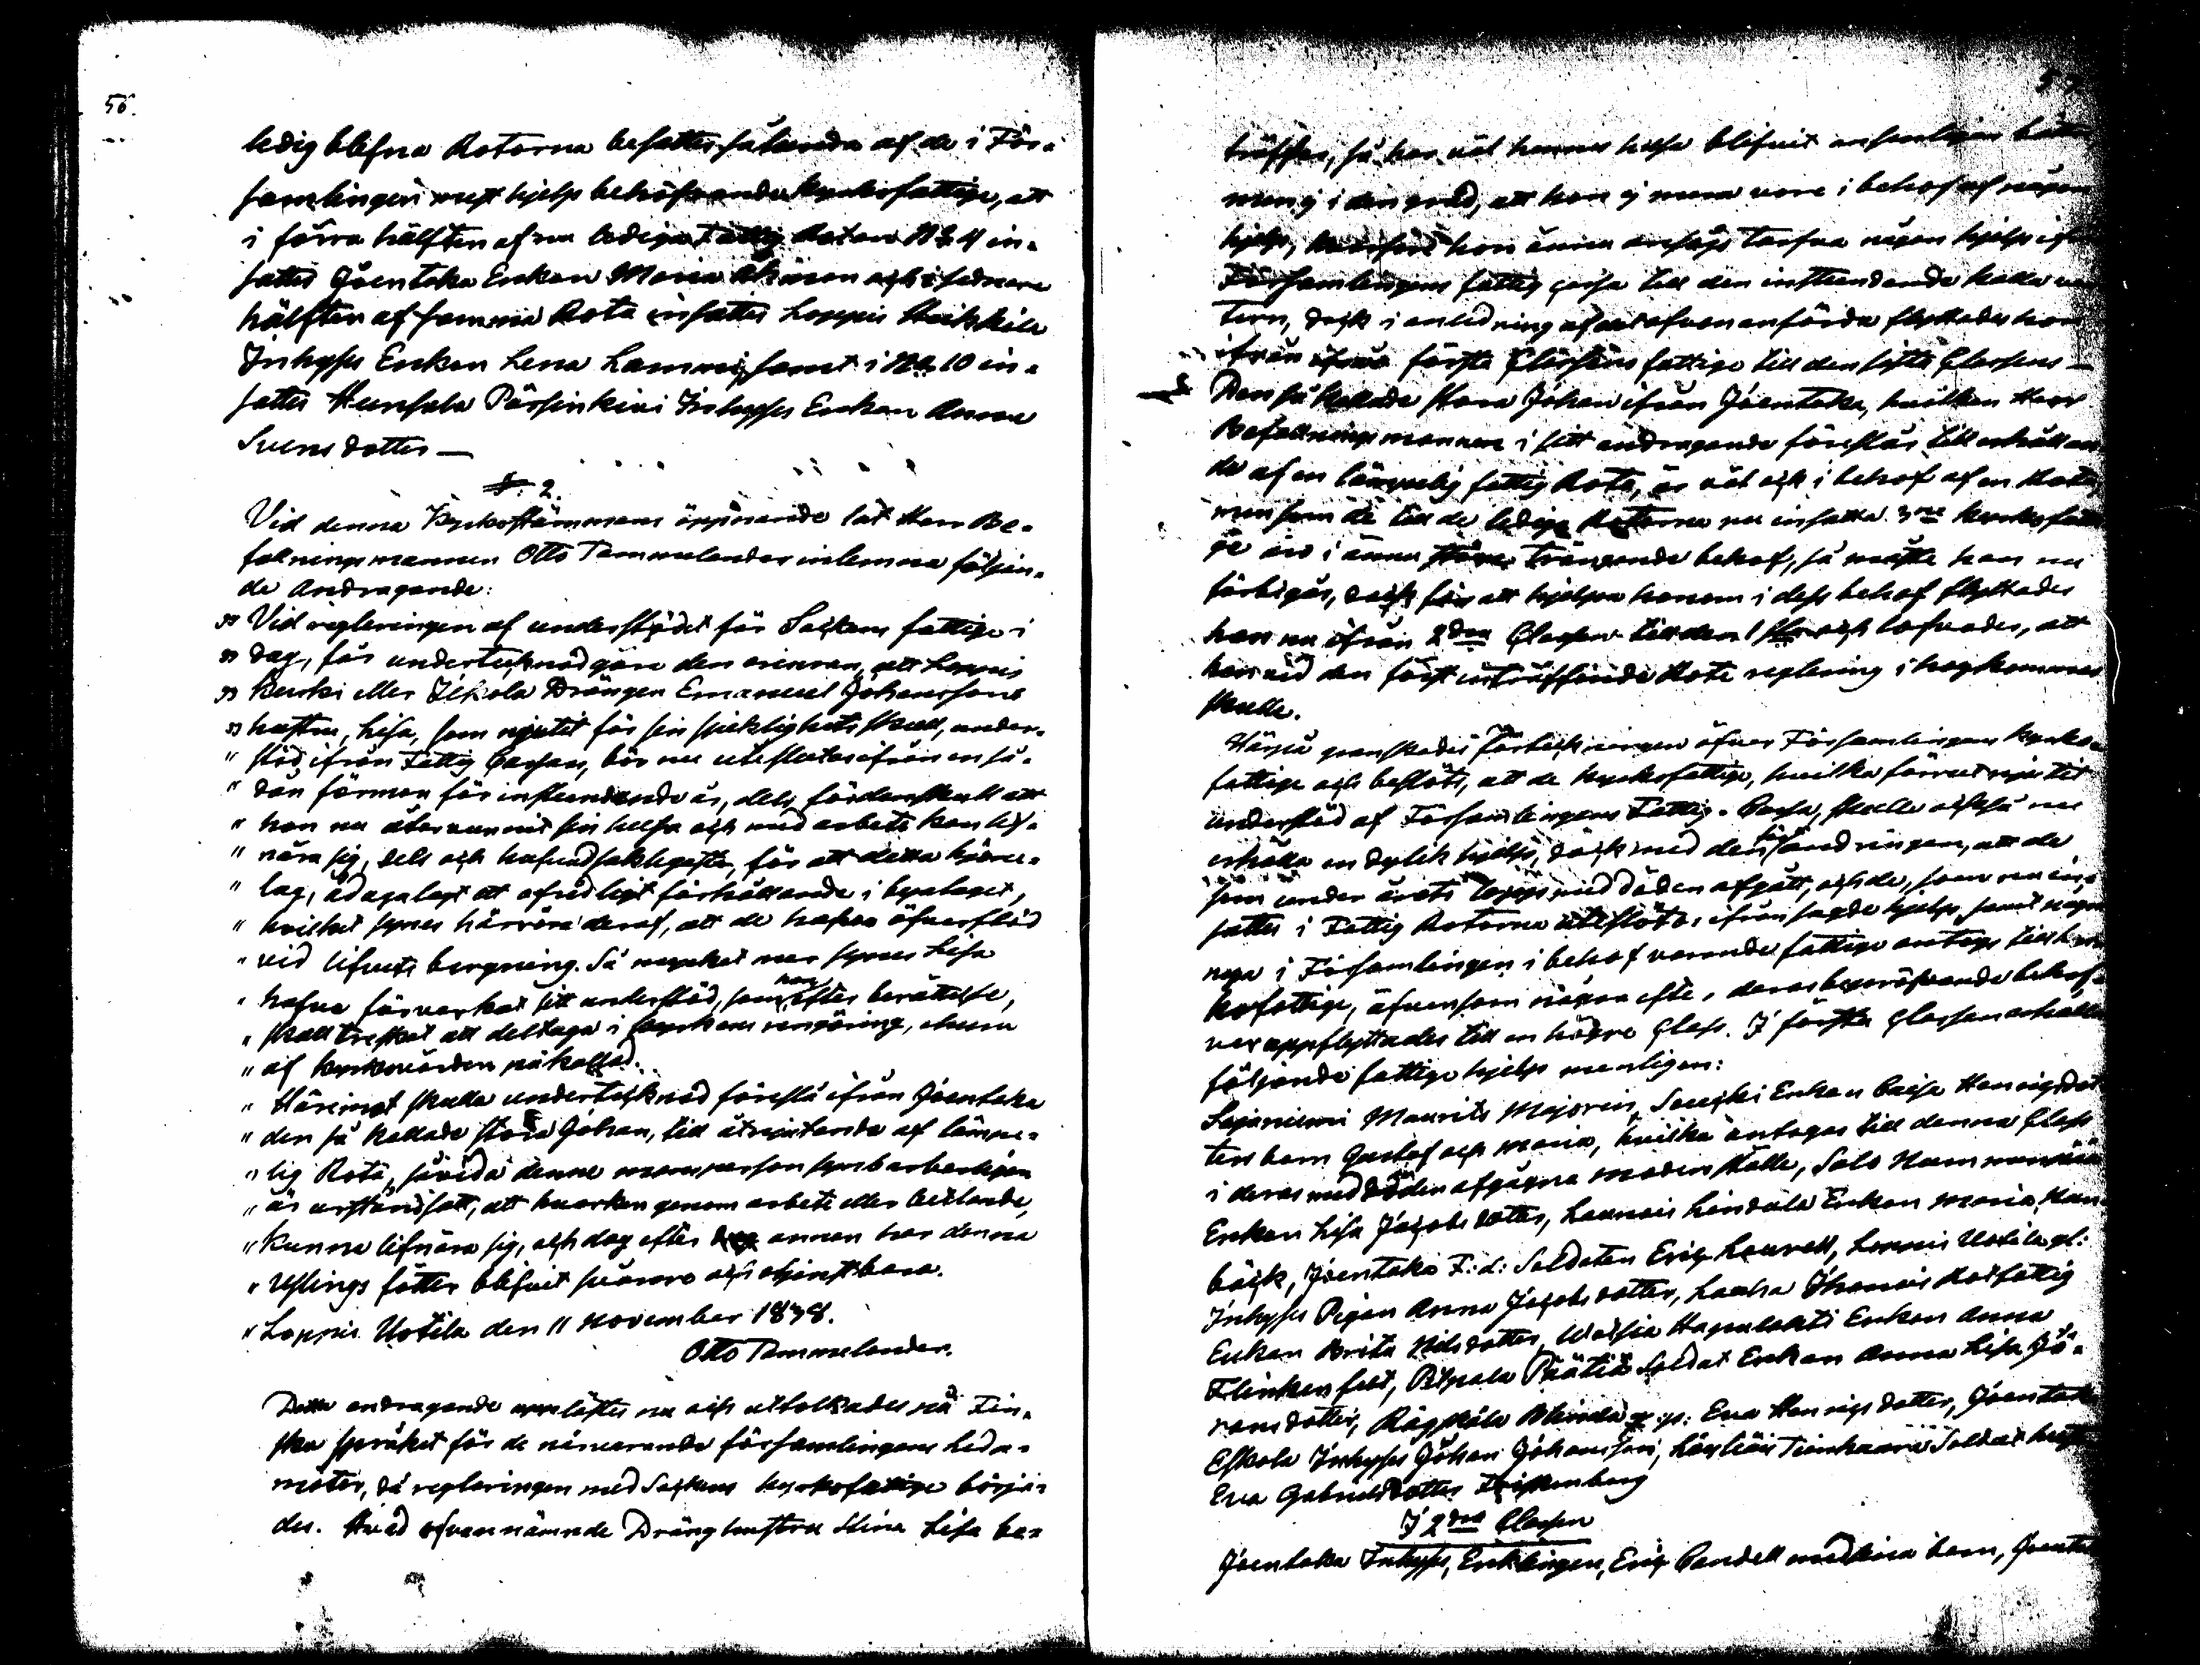 56.
ledig blefna Rotorna besattes sålunda af de i För-
samlingen mest hjelp behöfvande kyrkofattige, att
i förra hälften af nu lediga Fattig Rotan N:o 4 in-
sattes Joentaka Enkan Maria och i sednare
hälften af samma Rota insattes Loppis Heikkilä
Inhyses Enkan Lena Lammi, samt i N:o 10 in-
sattes Hunsala Pärsinkivi Inhyses Enkan Anna
Svensdotter —
§. 2.
Vid denna Kyrkostämmans öppnande lät Herr Be-
fallningsmannen Otto Tammelander inlemna följan-
de Andragande:
" Vid regleringen af understödet för Sockens fattige i
" dag, får undertecknad göra den erinran, att Loppis
" Kurki eller Jäkola Drängen Emanuel Johanssons
" hustru, Lisa, som njutit för sin sjuklighets skull, under-
" stöd ifrån Fattig Cassan, bör nu uteslutas ifrån en så-
" dan förmon för instundande år, dels fördenskull att
" hon nu återvunnit sin helsa och med arbete kan lif-
" nära sig, dels och hufvudsakligast, för att detta hjone-
" lag, ådagalagt ett ofredligt förhållande i byalaget,
" hvilket synes härröra deraf, att de hafva öfverflöd
" vid lifvets bergning. Så mycket mer synes Lisa
" hafva förverkat sitt understöd, som hon efter berättelse,
" skall tredskat att deltaga i kyrkans rengöring, ehuru
" af kyrkovärden påkallad.
" Häremot skulle undertecknad föreslå ifrån Joentaka
" den så kallade Stora Johan, till åtnjutande af lämpe-
" lig Rota, såvida denne mansperson synbarligen
" är urståndsatt, att hvarken genom arbete eller betlande,
" kunna lifnära sig, och dag efter dag annan har denna
" Uslings fötter blifvit svårare och otjenstbara.
" Loppis Uotila den 11 November 1838.
Otto Tammelander.
Detta andragande upplästes nu och uttolkades på Fin-
ska språket för de närvarande församlingens Leda-
möter, då regleringen med Sockens kyrkofattige börja-
des. Hvad ofvannämnde Dränghustru Stina Lisa be-
57
träffar, så har väl hennes helsa blifvit ansenligen bättre
men ej i den grad, att hon ej mera vore i behof af någon
hjelp, hvarföre hon ännu ansågs tarfva någon hjelp ifrån
Församlingens fattig cassa till den instundande kalla vin
tern, dock i anledning af det ofvan anförda flyttades hon
ifrån första Classens fattige till den sista Classens —
Den så kallade Stora Johan ifrån Joentaka, hvilken Herr
Befallningsmannen i sitt andragande föreslår till erhållan
de af en lämpelig fattig Rota, är väl ock i behof af en Rota,
men som de till de lediga Rotorna nu insatta 3ne kyrkofatti
ge äro i ännu större trängande behof, så måste han nu
förbigås, dock för att hjelpa honom i dess behof flyttades
han nu ifrån 2dra Classen till den 1sta och lofvades, att
han vid den först inträffande Rote reglering i hogkommas
skulle.
Härpå granskades Förteckningen öfver Församlingens kyrko-
fattige och beslöts, att de kyrkofattige, hvilka förrut njutit
understöd af Församlingens Fattig-Cassa, skulle också nu
erhålla en dylik hjelp, dock med den förändringen, att de
som under årets lopp med döden afgått, och de, som nu in-
sattes i Fattig Rotorna uteslötos ifrån sagde hjelp, samt någre
nya i Församlingen i behof varande fattige antogs till kyr
kofattige, äfvensom någon efter deras bepröfvande behof
ver uppflyttades till en högre Class. I första Classen erhålla
följande fattige hjelp nemligen:
Sajaniemi Maurits Majorin, Enkan Caisa Henrigsdot
ters barn Gustaf och Maria, hvilka antogos till denna Class
i deras med döden afgågna moders ställe, Salo
Enkan Lisa Jacobsdotter, Launois Lindala Enkan Maria
bäck, Joentaka F:d: Soldaten Eric Lourell, Loppis Uotila gl:
Inhyses Pigan Anna Jacobsdotter,
Enkan Brita Nilsdotter, Enkan Anna
Flinkenfelt, Pilpala Soldat Enkan Anna Lisa Jö-
ransdotter, Räyskälä gl: Eva Henrigsdotter, Joentaka
Eskola Inhyses Johan Johansson, Soldat hustru
Eva Gabrielsdotter
I 2dra Classen
Joentaka Inhyses, Enklingen, Eric Randell med sina barn, Joentaka